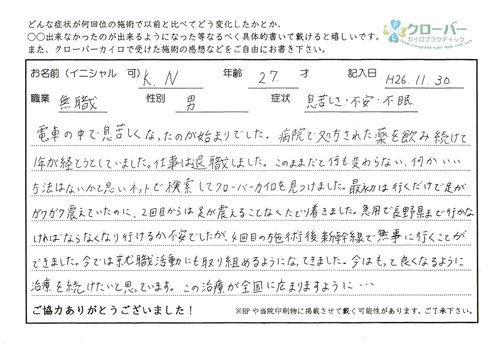 どんな症状が何回位の施術で以前と比べてどう変化したかとか、
○○出来なかったのが出来るようになった等なるべく具体的書いて戴けると嬉しいです。
また、クローバーカイロで受けた施術の感想などをご自由にお書き下さい。
クローバー
カイロプラクティック
お名前(イニシャル 可) K.N 年齢 27 才 記入日 H26.11.30.
職業 無職 性別 男 症状 息苦しさ・不安・不眠
電車の中で息苦しくなったのが始まりでした。病院で処方された薬を飲み続けて
1年が経とうとしていました。仕事は退職しました。このままだと何も変わらない、何かいい
方法はないかと思いネットで検索してクローバーカイロを見つけました。最初は行くだけで足が
ガクガク震えていたのに、2回目からは足が震えることなくたどり着きました。急用で長野県まで行かな
ければならなくなり行けるか不安でしたが、4回目の施術後新幹線で無事に行くことが
できました。今では就職活動にも取り組めるようになってきました。今はもっと良くなるように
治療を続けたいと思っています。この治療が全国に広まりますように…
ご協力ありがとうございました!
※HPや当院印刷物に掲載させて戴く可能性があります。ご了承下さい。